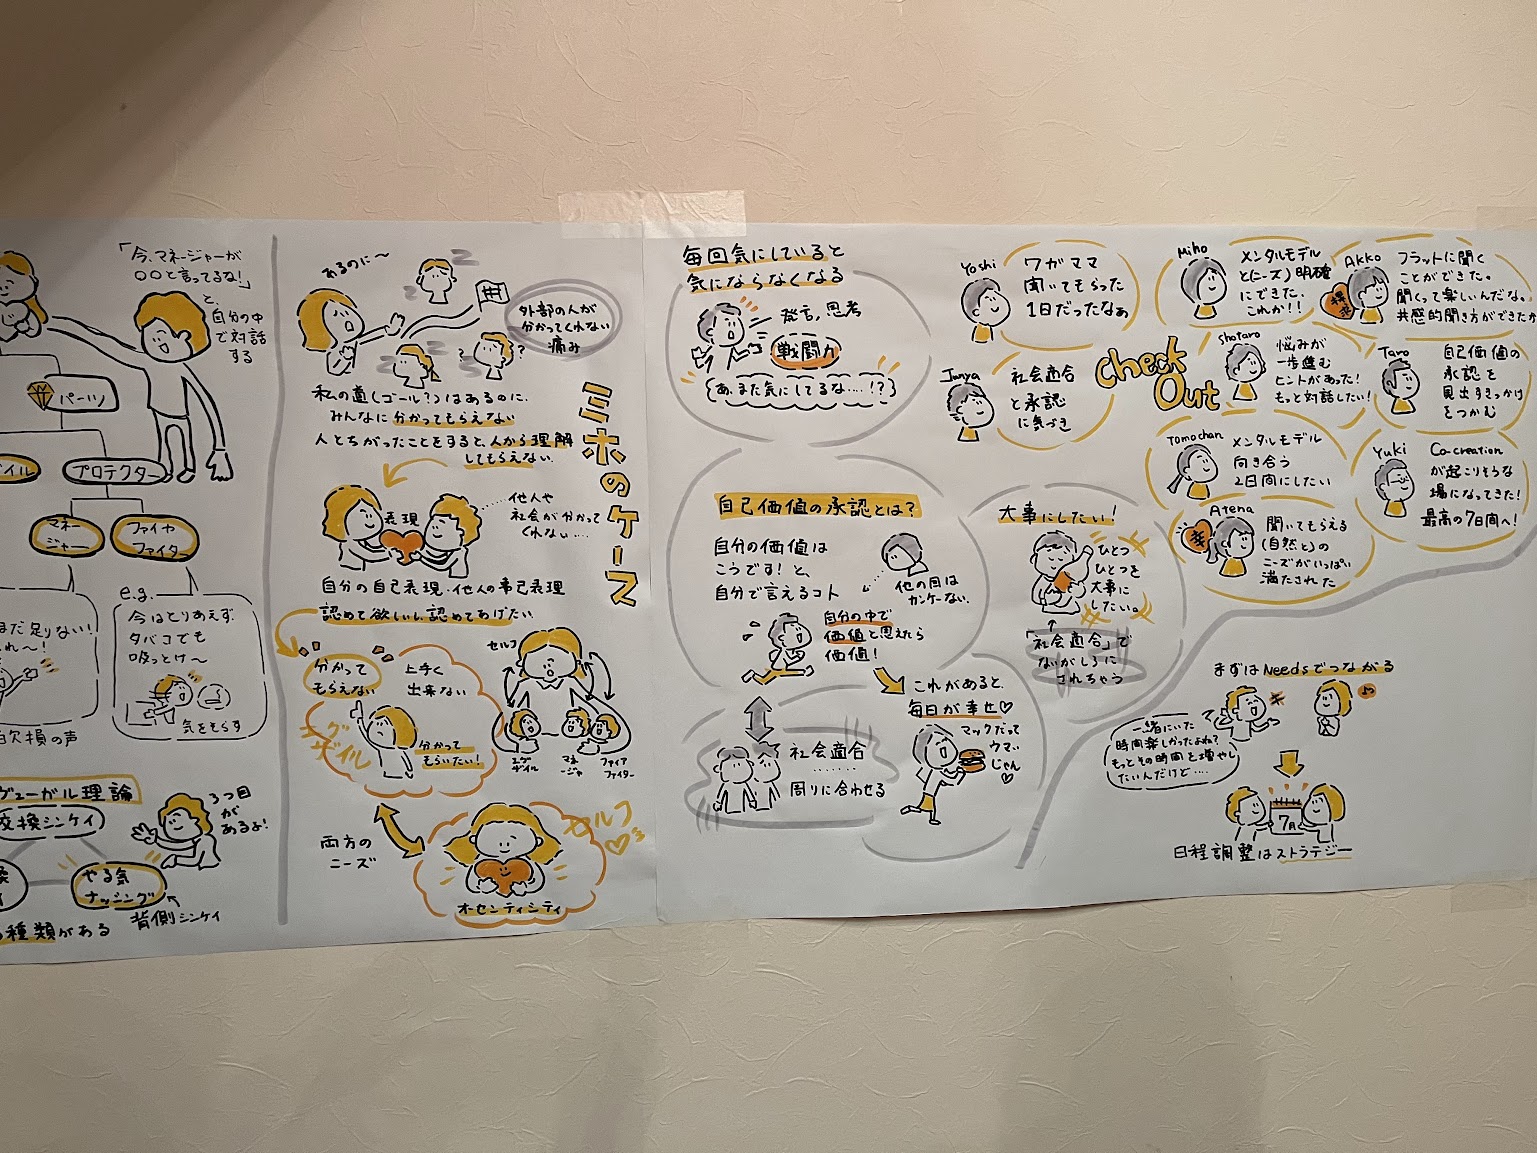 「今、マネージャーが
〇〇と言ってるな!」
と、
自分の中
で対話
する
パーツ
プロテクター
マネー
ジャー
ファイヤ
ファイター
e.g.
まだ足りない!
今はとりあえず、
タバコでも
吸っとけ〜
気をそらす
欠損の声
ヴェーガル理論
3つ目
が
あるよ!
交換シンケイ
やる気
ナッシング
背側シンケイ
種類がある
あるのに〜
外部の人が
分かってくれない
痛み
私の道(ゴール?)はあるのに、
みんなに分かってもらえない
人とちがったことをすると、人から理解
してもらえない
ミホのケース
表現
他人や
社会が分かって
くれない…
自分の自己表現・他人の事己表理
認めて欲しいし、認めてあげたい
分かって
もらえない
上手く
出来ない
エグザイル
分かって
もらいたい!
セルフ
エグ
ザイル
マネ
ージャ
ファイア
ファイター
両方の
ニーズ
セルフ
オーセンティシティ
毎回気にしていると
気にならなくなる
発言,思考
戦闘力
あ、また気にしてるな……!?
自己価値の承認とは?
自分の価値は
こうです!と、
自分で言えるコト
他の目は
カンケーない。
自分の中で
価値と思えたら
価値!
社会適合
周りに合わせる
これがあると、
毎日が幸せ♡
マックだって
ウマい
じゃん
♡
大事にしたい!
ひとつ
ひとつを
大事に
したい。
「社会適合」で
ないがしろに
されちゃう
Check
Out
Yoshi
ワガママ
聞いてもらった
1日だったなぁ
Junya
社会適合
と承認
に気づき
Miho
メンタルモデル
と(ニーズ)明確
にできた。
これか!!
Akko
フラットに聞く
ことができた。
聞くって楽しいんだな。
共感的聞き方ができたか
Shotaro
悩みが
一歩進む
ヒントがあった!
もっと対話したい!
Taro
自己価値の
承認を
見出すきっかけ
をつかむ
Tomochan
メンタルモデル
向き合う
2日間にしたい
Yuki
Co-creation
が起こりそうな
場になってきた!
最高の7日間へ!
Atena
聞いてもらえる
(自然と)の
ニーズがいっぱい
満たされた
まずはNeedsでつながる
一緒にいた
時間楽しかったよね?
もっとその時間を増やし
たいんだけど….
7月
日程調整はストラテジー